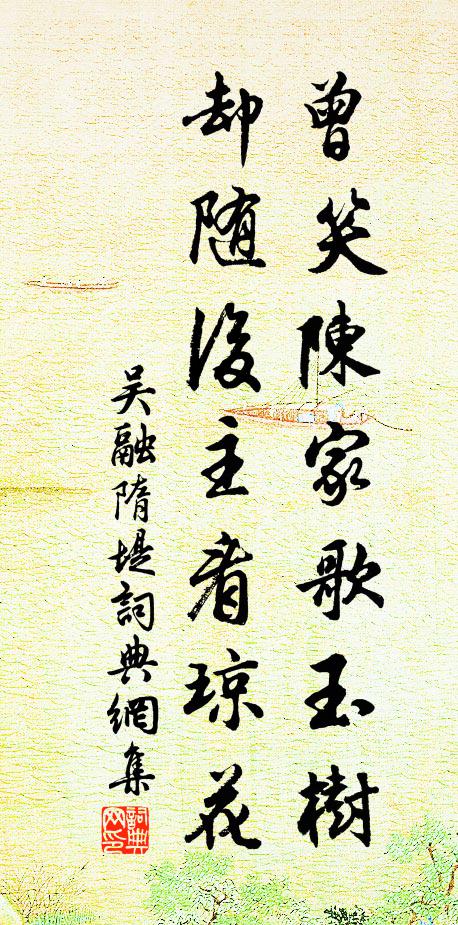 曾笑陳家歌玉樹
却随後主看琼花
吴融隋堤詞典網集
詞典網印